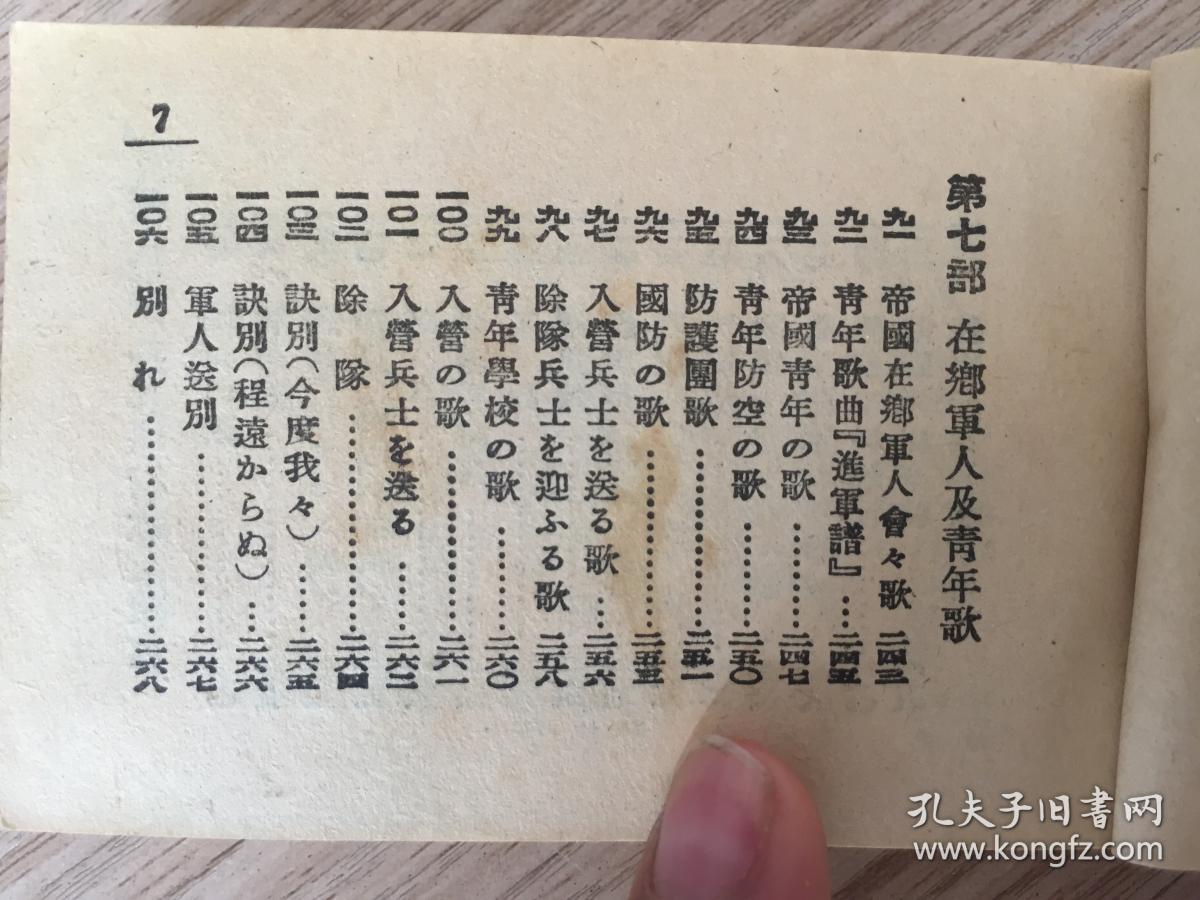 第七部 在鄕軍人及靑年歌
九一 帝國在鄕軍人會々歌 二四三
九二 靑年歌曲『進軍譜』…二四五
九三 帝國靑年の歌…………二四七
九四 靑年防空の歌…………二五〇
九五 防護團歌………………二五一
九六 國防の歌………………二五五
九七 入營兵士を送る歌…二五六
九八 除隊兵士を迎ふる歌 二五八
九九 靑年學校の歌…………二六〇
一〇〇 入營の歌………………二六一
一〇一 入營兵士を送る………二六二
一〇二 除隊……………………二六四
一〇三 訣別(今度我々)………二六五
一〇四 訣別(程遠からぬ)…二六六
一〇五 軍人送別………………二六七
一〇六 別れ……………………二六八
7
孔夫子旧书网
www.kongfz.com